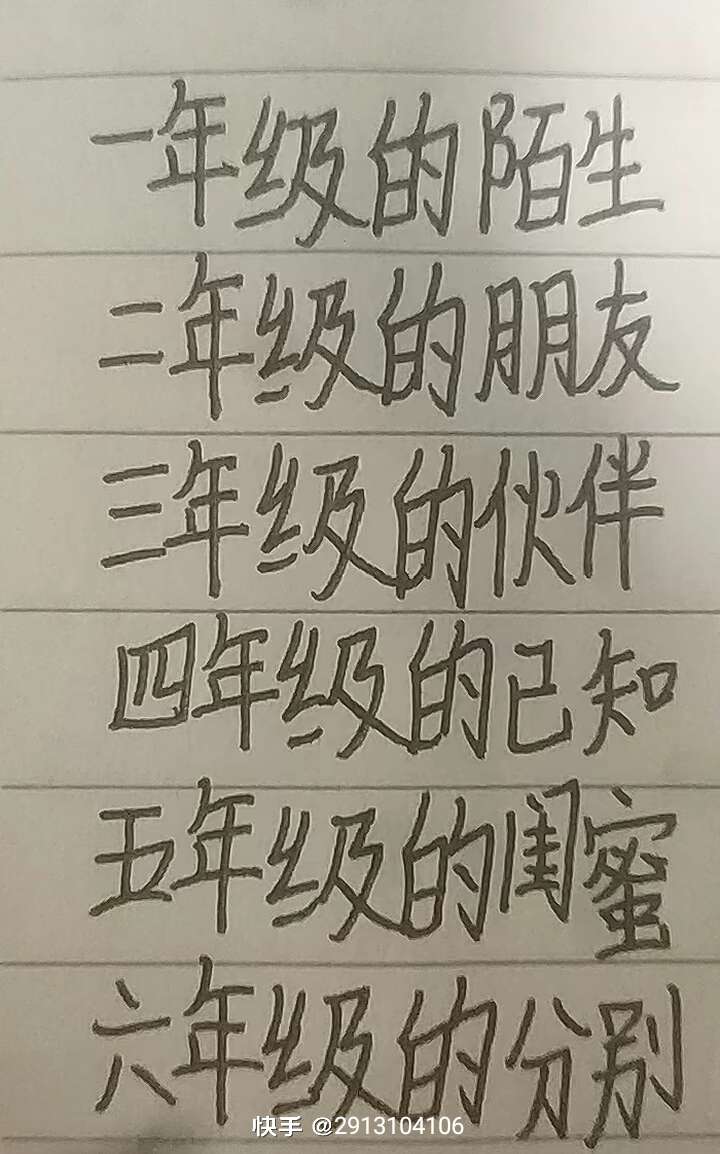 一年级的陌生
二年级的朋友
三年级的伙伴
四年级的已知
五年级的闺蜜
六年级的分别
快手 @2913104106